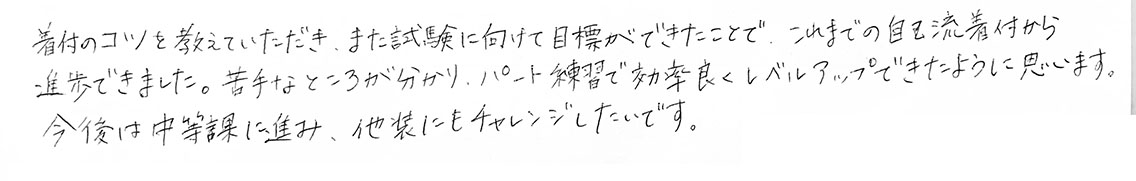 着付のコツを教えていただき、また試験に向けて目標ができたことで、これまでの自己流着付から
進歩できました。苦手なところが分かり、パート練習で効率良くレベルアップできたように思います。
今後は中等課に進み、他装にもチャレンジしたいです。